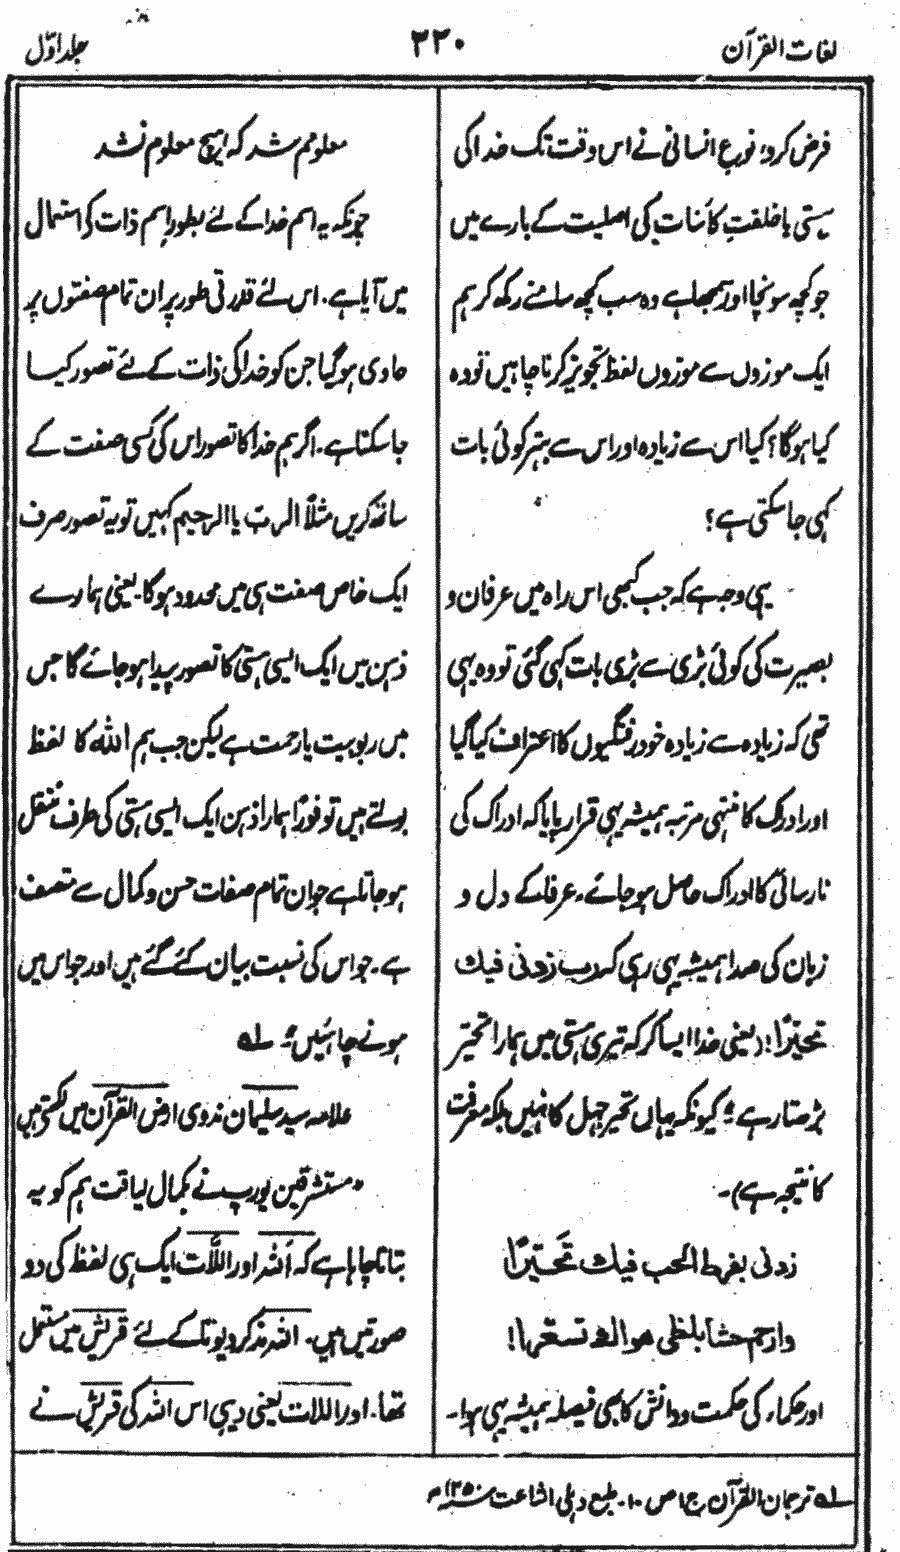 لغات القرآن
۲۲۰
جلد اوّل
فرض کرو؛ نوعِ انسانی نے اس وقت تک خدا کی
ہستی یا خلقتِ کائنات کی اصلیت کے بارے میں
جو کچھ سونچا اور سمجھا ہے وہ سب کچھ سامنے رکھ کر ہم
ایک موزوں سے موزوں لفظ تجویز کرنا چاہیں تو وہ
کیا ہوگا؟ کیا اس سے زیادہ اور اس سے بہتر کوئی بات
کہی جا سکتی ہے؟
یہی وجہ ہے کہ جب کبھی اس راہ میں عرفان و
بصیرت کی کوئی بڑی سے بڑی بات کہی گئی تو وہ یہی
تھی کہ زیادہ سے زیادہ خود رفتگیوں کا اعتراف کیا گیا
اور ادراک کا منتہی مرتبہ ہمیشہ یہی قرار پایا کہ ادراک کی
نارسائی کا ادراک حاصل ہو جائے۔ عرفاء کے دل و
زبان کی صدا ہمیشہ یہی رہی کہ رب زدنی فیك
تحیرًا! (یعنی خدایا ایسا کر کہ تیری ہستی میں ہمارا تحیّر
بڑھتا رہے؛ کیونکہ یہاں تحیر جہل کا نہیں بلکہ معرفت
کا نتیجہ ہے)۔
زدنی بفرط الحب فیك تَحَیّرًا
وارحم حشاً بلظی هواك تسعّرا!
اور حکماء کی حکمت و دانش کا بھی فیصلہ ہمیشہ یہی ہوا۔
معلومم شد کہ ہیچ معلوم نشد
چونکہ یہ اسم خدا کے لئے بطورِ اسم ذات کی استعمال
میں آیا ہے، اس لئے قدرتی طور پر ان تمام صفتوں پر
حاوی ہو گیا جن کو خدا کی ذات کے لئے تصور کیا
جا سکتا ہے۔ اگر ہم خدا کا تصور اس کی کسی صفت کے
ساتھ کریں مثلًا الرب یا الرحیم کہیں تو یہ تصور صرف
ایک خاص صفت ہی میں محدود ہوگا۔ یعنی ہمارے
ذہن میں ایک ایسی ہستی کا تصور پیدا ہو جائے گا جس
میں ربوبیت یا رحمت ہے لیکن جب ہم اللہ کا لفظ
بولتے ہیں تو فورًا ہمارا ذہن ایک ایسی ہستی کی طرف منتقل
ہو جاتا ہے جو ان تمام صفات حسن و کمال سے متصف
ہے۔ جو اس کی نسبت بیان کئے گئے ہیں اور جو اس میں
ہونے چاہئیں؛ لہ
علامہ سید سلیمان ندوی ارض القرآن میں لکھتے ہیں
"مستشرقین یورپ نے بکمال لیاقت ہم کو یہ
بتانا چاہا ہے کہ اَللّٰہ اور اللَّات ایک ہی لفظ کی دو
صورتیں ہیں۔ اللہ مذکر دیوتا کے لئے قریش میں مستعمل
تھا۔ اور اللات یعنی دیبی اس اللہ کی قریش نے
لہ ترجمان القرآن ج ۱ ص ۱۰۔ طبع دہلی اشاعت ۱۳۵۰ھ